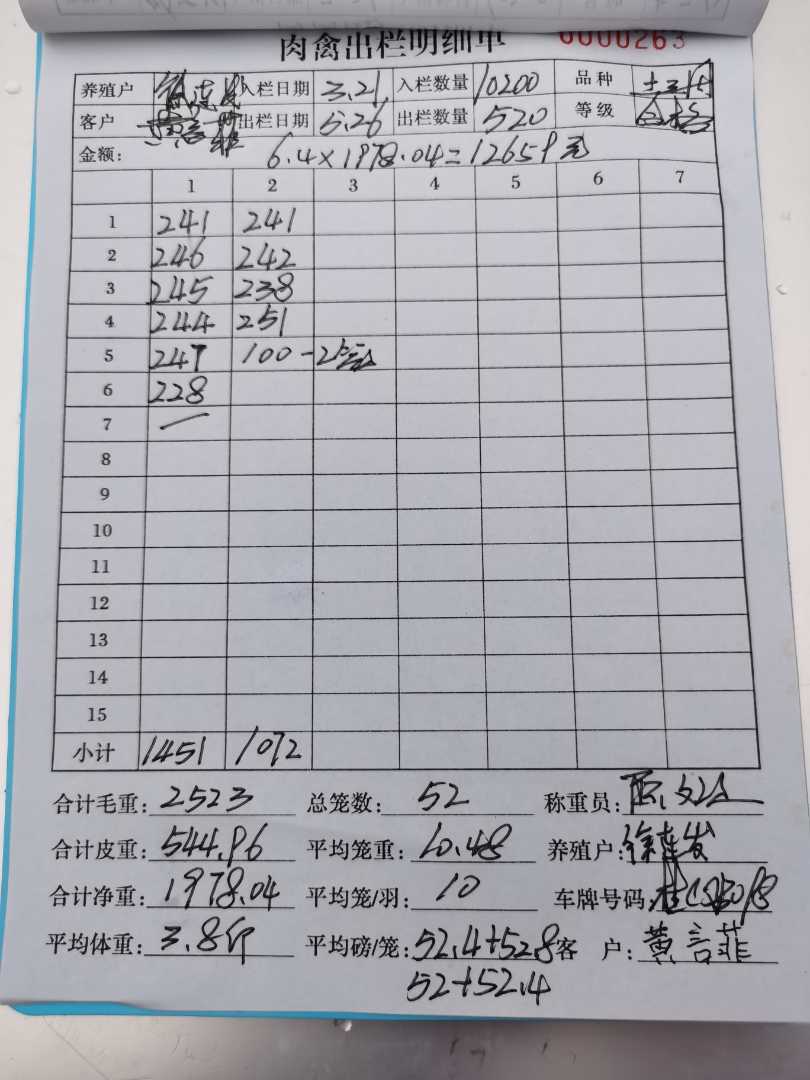 肉禽出栏明细单 0000263
养殖户 入栏日期 3.21 入栏数量 10200 品种
客户 出栏日期 5.26 出栏数量 520 等级 合格
金额: 6.4×1978.04=12659元
1 2 3 4 5 6 7
1 241 241
2 246 242
3 245 238
4 244 251
5 247 100-2笼
6 228
7 一
8
9
10
11
12
13
14
15
小计 1451 1072
合计毛重: 2523 总笼数: 52 称重员:
合计皮重: 544.96 平均笼重: 10.48 养殖户: 徐连发
合计净重: 1978.04 平均笼/羽: 10 车牌号码:
平均体重: 3.8斤 平均磅/笼: 52.4+52.8 客 户: 黄言菲
52+52.4